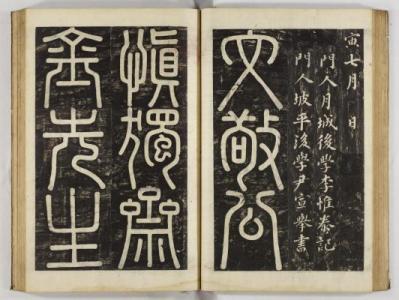 寅七月 日
門人月城後學李惟泰記
門人坡平後學尹宣擧書
文敬公
愼獨齋
金先生